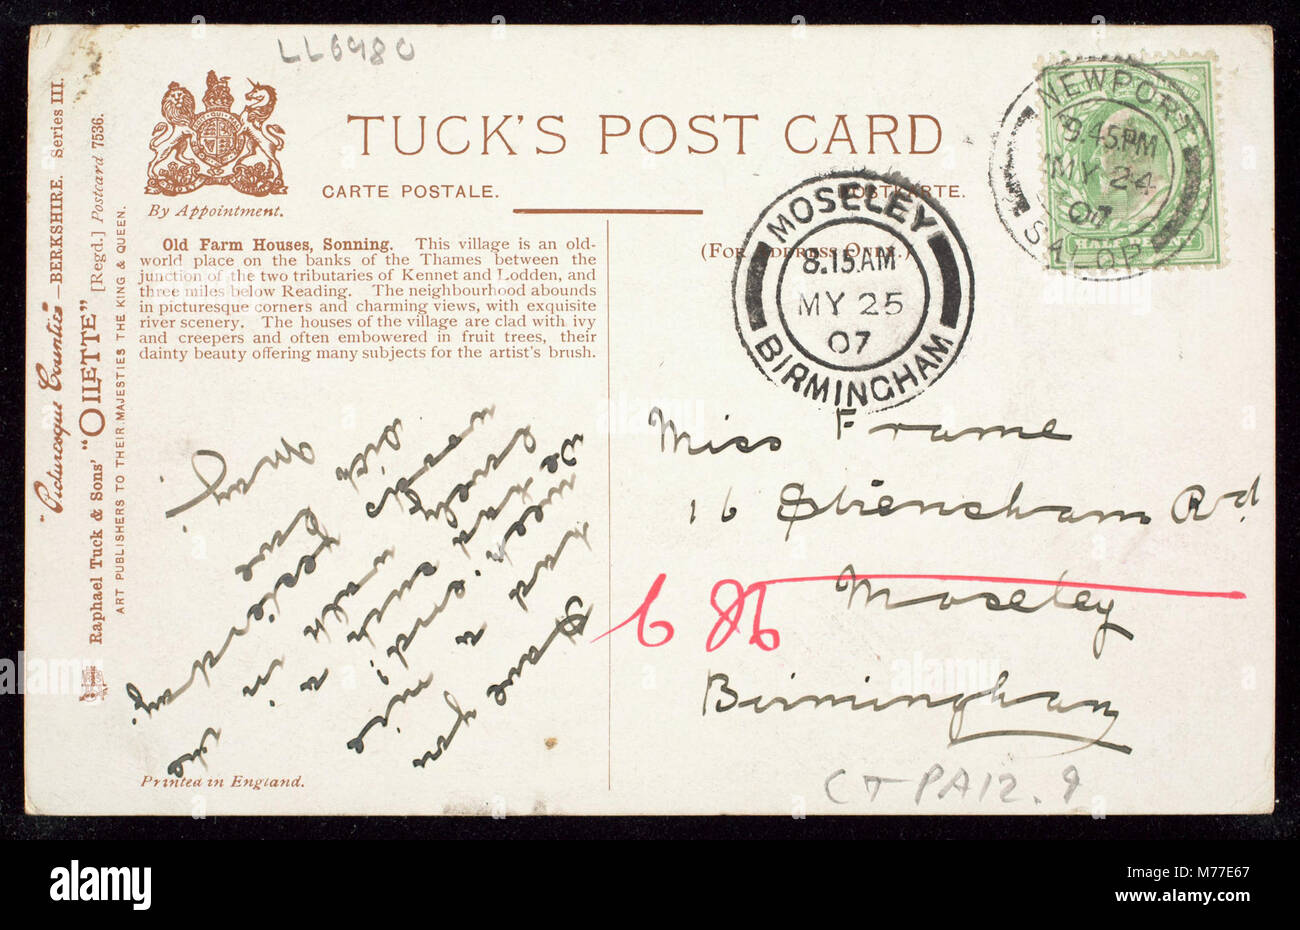 LL6980
TUCK'S POST CARD
CARTE POSTALE.
POSTKARTE.
By Appointment.
(FOR ADDRESS ONLY.)
Old Farm Houses, Sonning. This village is an old-
world place on the banks of the Thames between the
junction of the two tributaries of Kennet and Lodden, and
three miles below Reading. The neighbourhood abounds
in picturesque corners and charming views, with exquisite
river scenery. The houses of the village are clad with ivy
and creepers and often embowered in fruit trees, their
dainty beauty offering many subjects for the artist's brush.
"Picturesque Counties"—BERKSHIRE. Series III.
Raphael Tuck & Sons' "OILETTE" [Regd.] Postcard 7536.
ART PUBLISHERS TO THEIR MAJESTIES THE KING & QUEEN.
Printed in England.
NEWPORT
9.45PM
MY 24
07
SALOP
HALFPENNY
MOSELEY
8.15AM
MY 25
07
BIRMINGHAM
Have you
had a nice
week end;
We had such a
lovely walk in the
woods yesterday
with
May.
Miss Frame
16 Strensham Rd
Moseley
Birmingham
CT-PA12.9
alamy
Image ID: M77E67
www.alamy.com